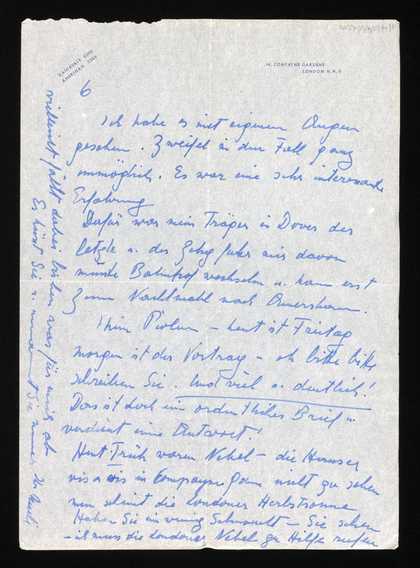 14, COMPAYNE GARDENS
LONDON N.W.6
6
Ich habe es mit eigenen Augen
gesehen. Zweifel in dem Fall ganz
unmöglich. Es war eine sehr interessante
Erfahrung
Dafür war mein Träger in Dover der
letzte u. der Zug fuhr mir davon
musste Bahnhof wechseln u. kam erst
zum Nachtmahl nach Amersham.
heut ist Freitag
morgen ist der Vortrag – oh bitte bitte
schreiben Sie. Und viel u. deutlich!
Das ist doch ein ordentlicher Brief u.
verdient eine Antwort!
Heut Früh waren Nebel – die Häuser
vis a vis in Compayne Gdns nicht zu sehen
nun scheint die Londoner Herbstsonne
Haben Sie ein wenig Sehnsucht – Sie sehen
– ich muss die Londoner Nebel zu Hilfe rufen
vielleicht fällt dabei bischen was für mich ab
Es küsst Sie u. umarmt Sie immer